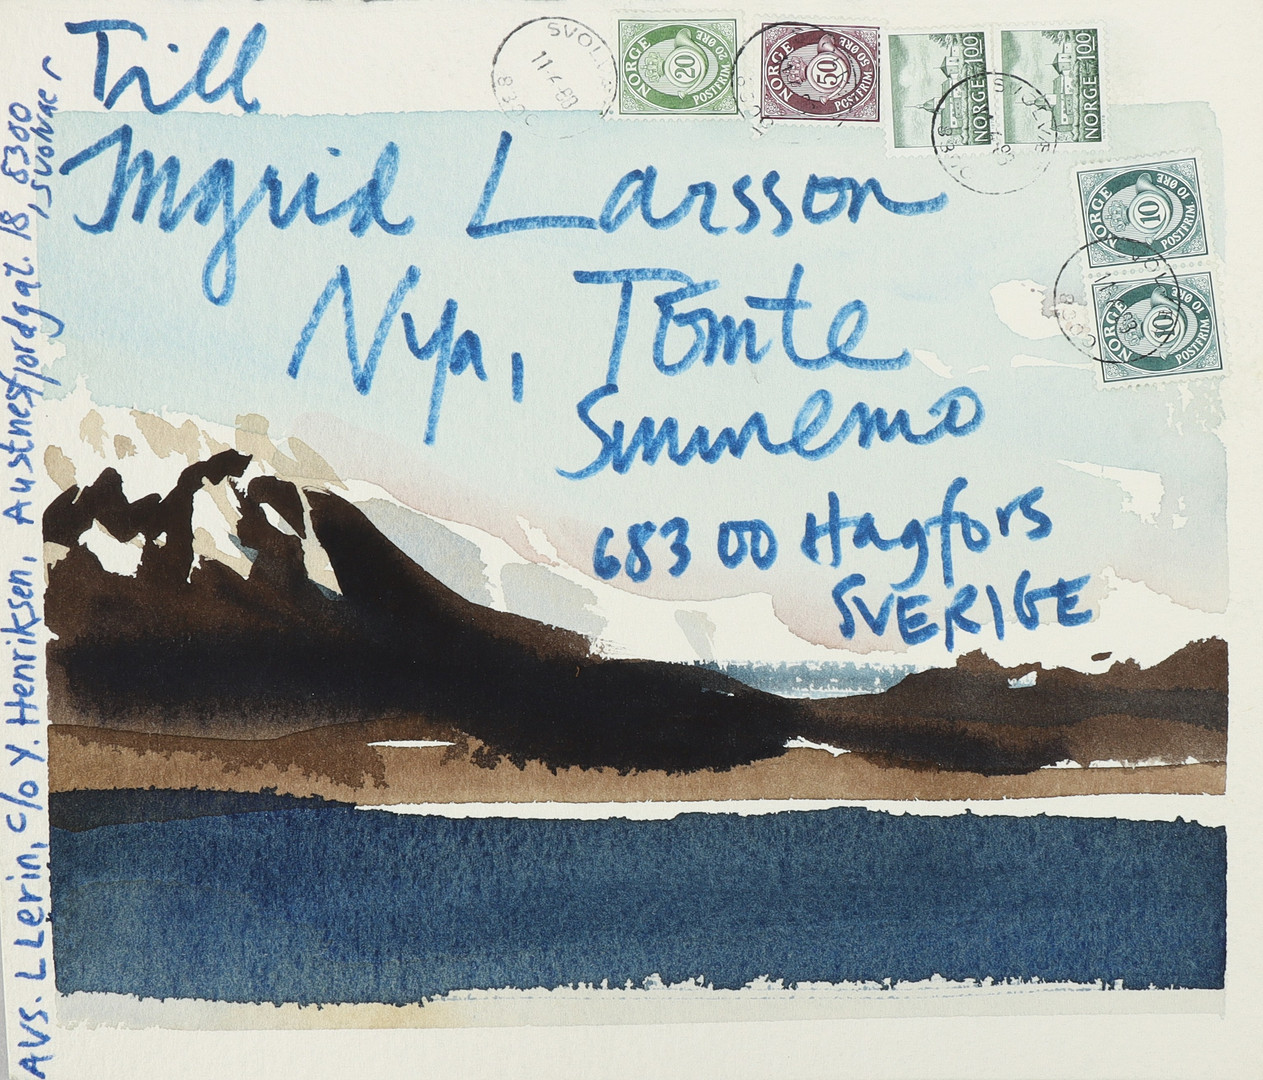 Till
Ingrid Larsson
Nya, Tömte
Sunnemo
683 00 Hagfors
SVERIGE
AVS. L Lerin, c/o Y. Henriksen, Austnesfjordgat. 18, 8300
, SVOLVÆR
NORGE
20
POSTFRIM. 20 ØRE
NORGE
50
POSTFRIM. 50 ØRE
NORGE 100
NORGE 100
NORGE
10
POSTFRIM. 10 ØRE
NORGE
10
POSTFRIM. 10 ØRE